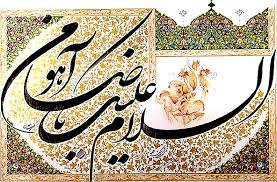 السلام علیک یا ضامن آهو